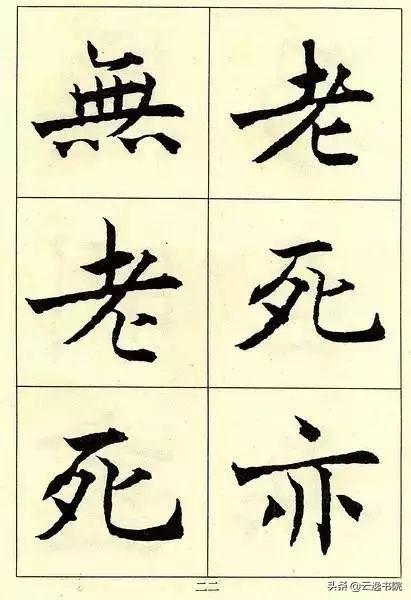 老死亦
無老死
二二
头条 @云逸书院